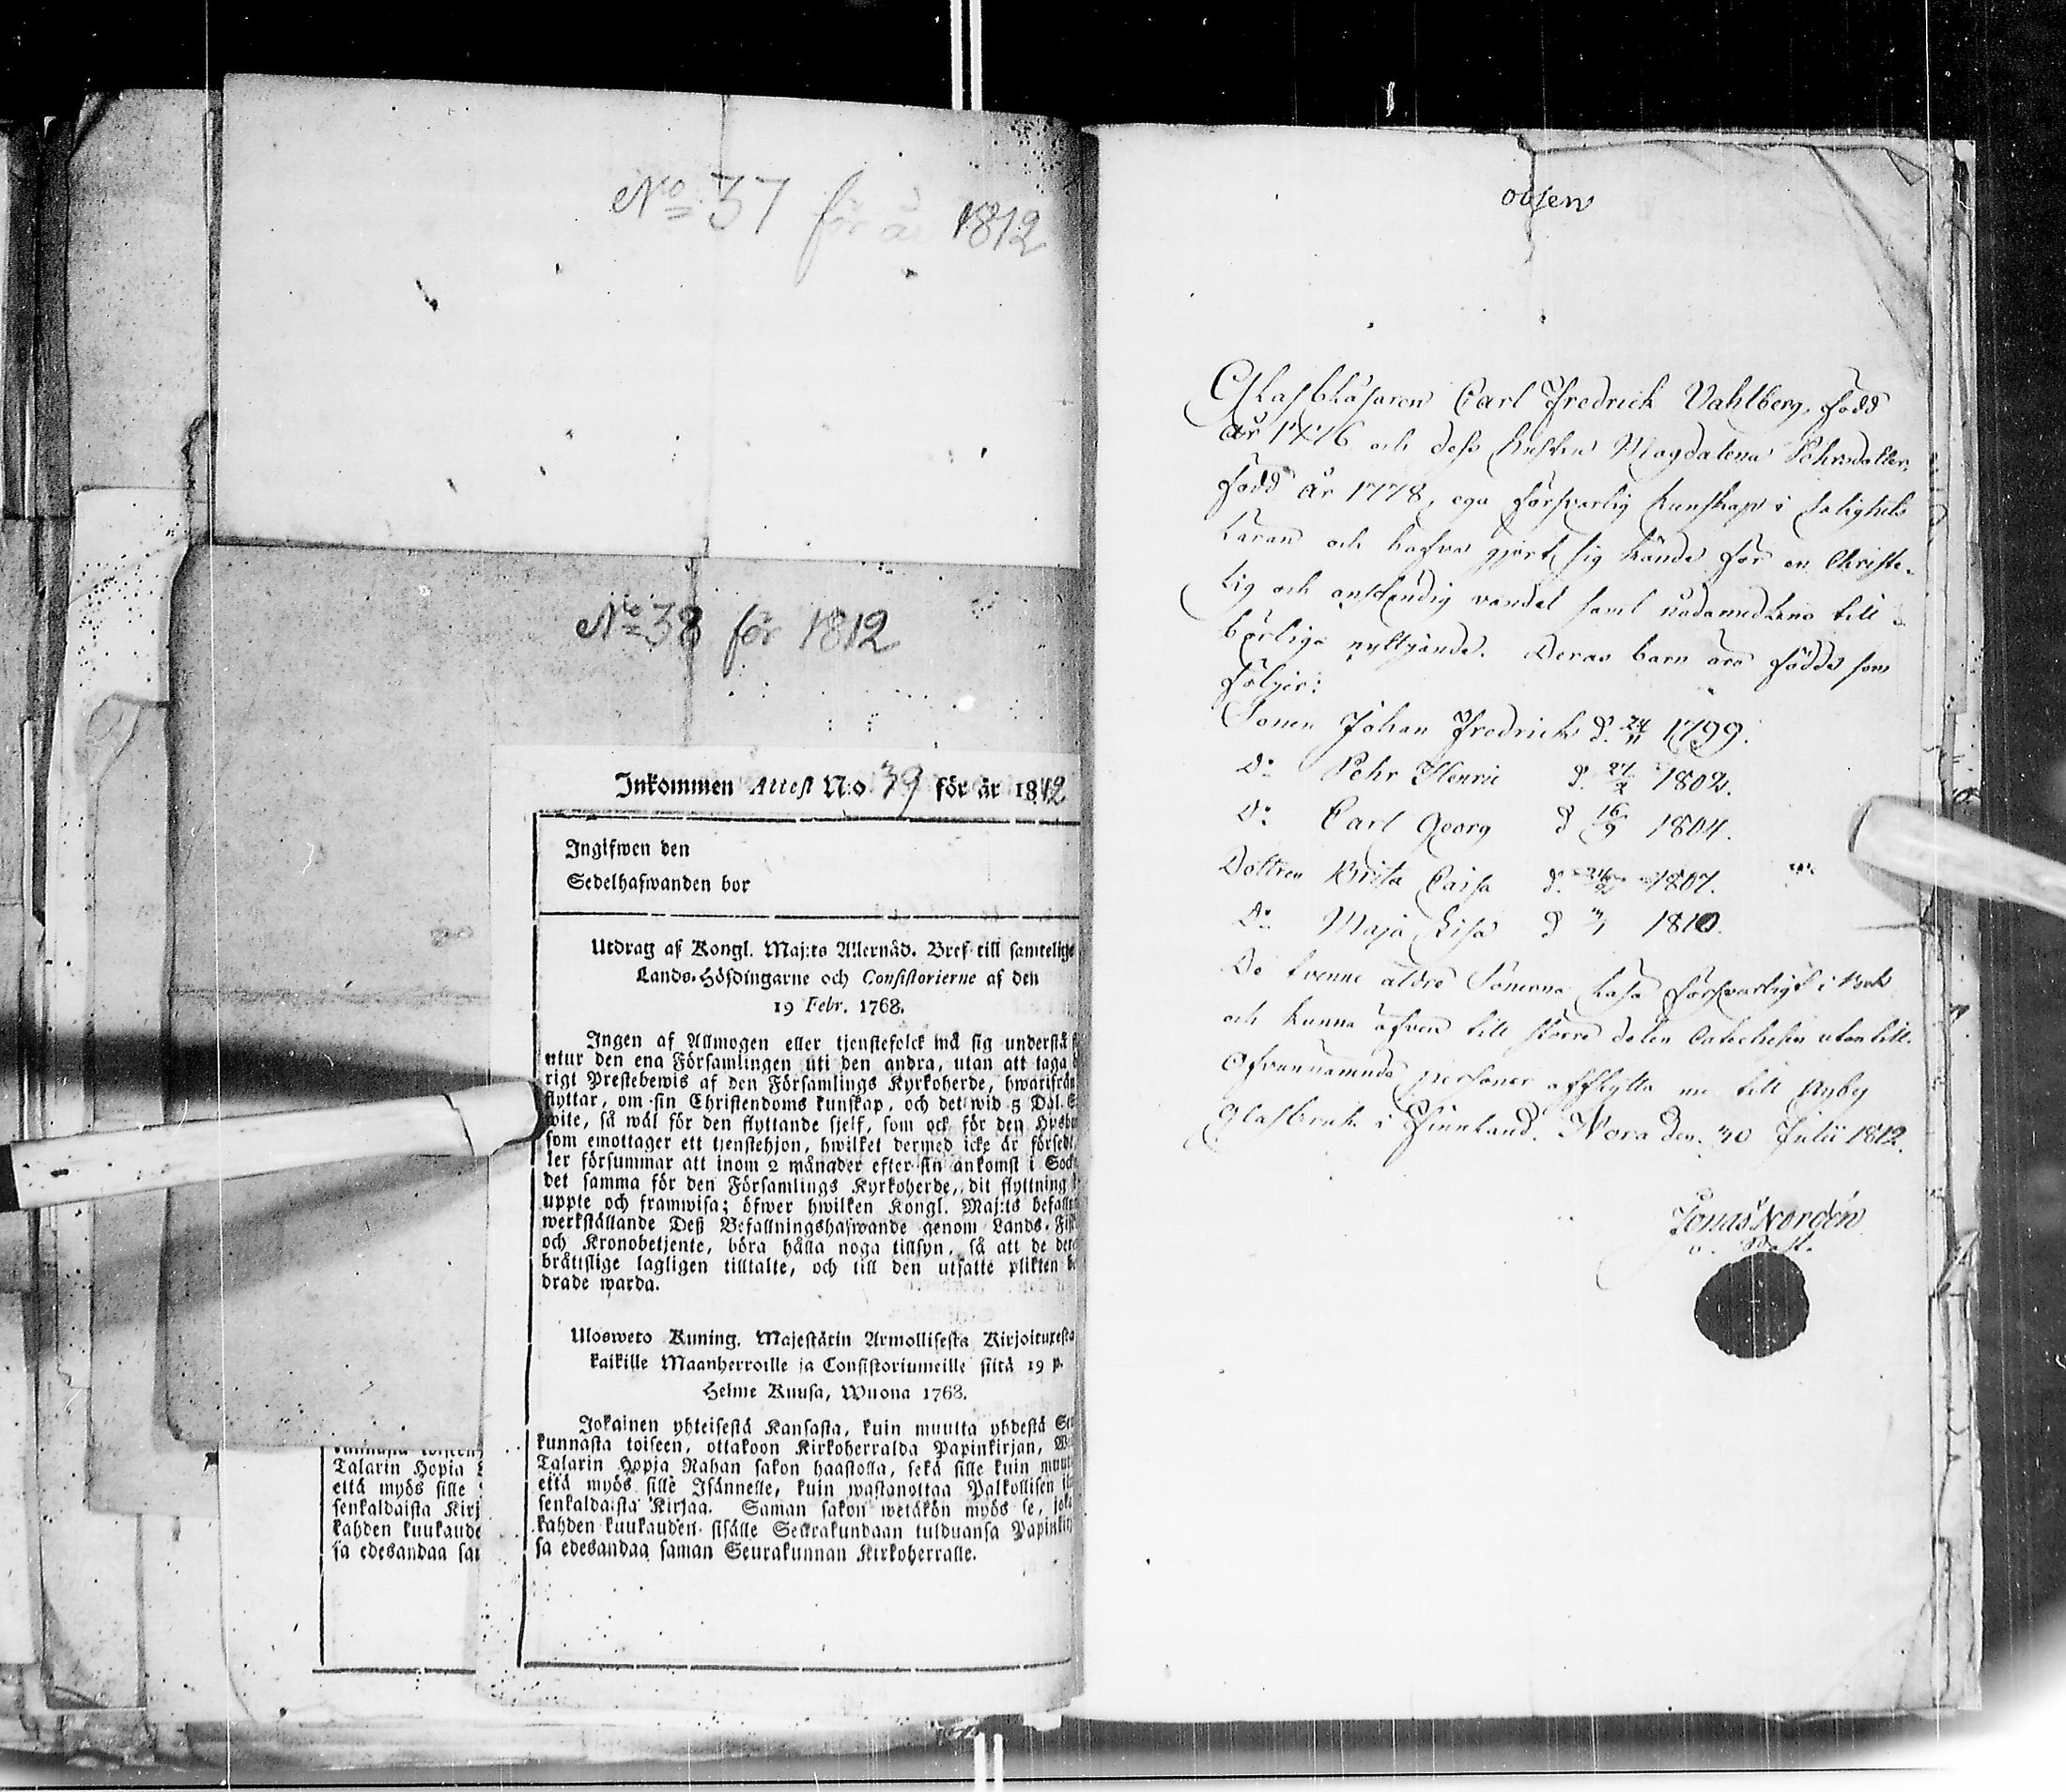 No 37 för år 1812
No 38 för 1812
Inkommen Attest N:o 39 för år 1812
Ingifwen den
Sedelhafwanden bor
Utdrag af Kongl. Maj:ts Allernåd. Bref till samtelige
Lands-Höfdingarne och Consistorierne af den
19 Febr. 1768.
Ingen af Allmogen eller tjenstefolck må sig understå
utur den ena Församlingen uti den andra, utan att taga
rigt Prestebewis af den Församlings Kyrkoherde, hwarifrån
flyttar, om sin Christendoms kunskap, och det wid 5 Dal.
wite, så wäl för den flyttande sjelf, som ock för den
som emottager ett tjenstehjon, hwilket dermed icke är
ler försummar att inom 2 månader efter sin ankomst i
det samma för den Församlings Kyrkoherde, dit flyttning
uppte och framwisa; öfwer hwilken Kongl. Maj:ts
werkställande Deß Befallningshafwande genom Lands-
och Kronobetjente, böra hålla noga tillsyn, så att de
bråtslige lagligen tilltalte, och till den utsatte plikten
drade warda.
Ulosweto Kuning. Majestätin Armollisesta
kaikille Maanherroille ja Consistoriumeille siitä 19 p.
Helme Kuusa, Wuona 1768.
Jokainen yhteisestä Kansasta, kuin muutta yhdestä
kunnasta toiseen, ottakoon Kirkoherralda Papinkirjan,
Talarin Hopja Rahan sakon haastolla, sekä sille kuin
että myös sille Isännelle, kuin wastanottaa Palkollisen
senkaldaista Kirjaa. Saman sakon wetäkön myös se,
kahden kuukauden sisälle Seurakundaan tulduansa
sa edesandaa saman Seurakunnan Kirkoherralle.
Talarin Hopia
että myös sille
senkaldaista
kahden
sa edesandaa
Glasblåsaren Carl Fredrick Vahlberg, född
år och dess hustru Magdalena Pehrsdotter,
född år 1778, ega försvarlig kunskap i salighets
läran och hafva gjort sig kände för en Christe-
lig och anständig vandel samt nådamedlens till-
börliga nyttjande. Deras barn äro födde som
följer:
Sonen Johan Fredrick d. 24/11 1799.
Do Pehr Henric d. 27/2 1802.
Do Carl Georg d 16/9 1804.
Dottren Brita Caisa d. 1807.
Do Maja Lisa d 1810.
De tvenne äldre Sönerna läsa försvarligt i Bok
och kunna äfven till större delen Catechesen utantill.
Ofvannämnda personer afflytta nu till Nyby
Glasbruk i Finnland. Nora den 30 Julii 1812.
Jonas Nordén
v. Past.